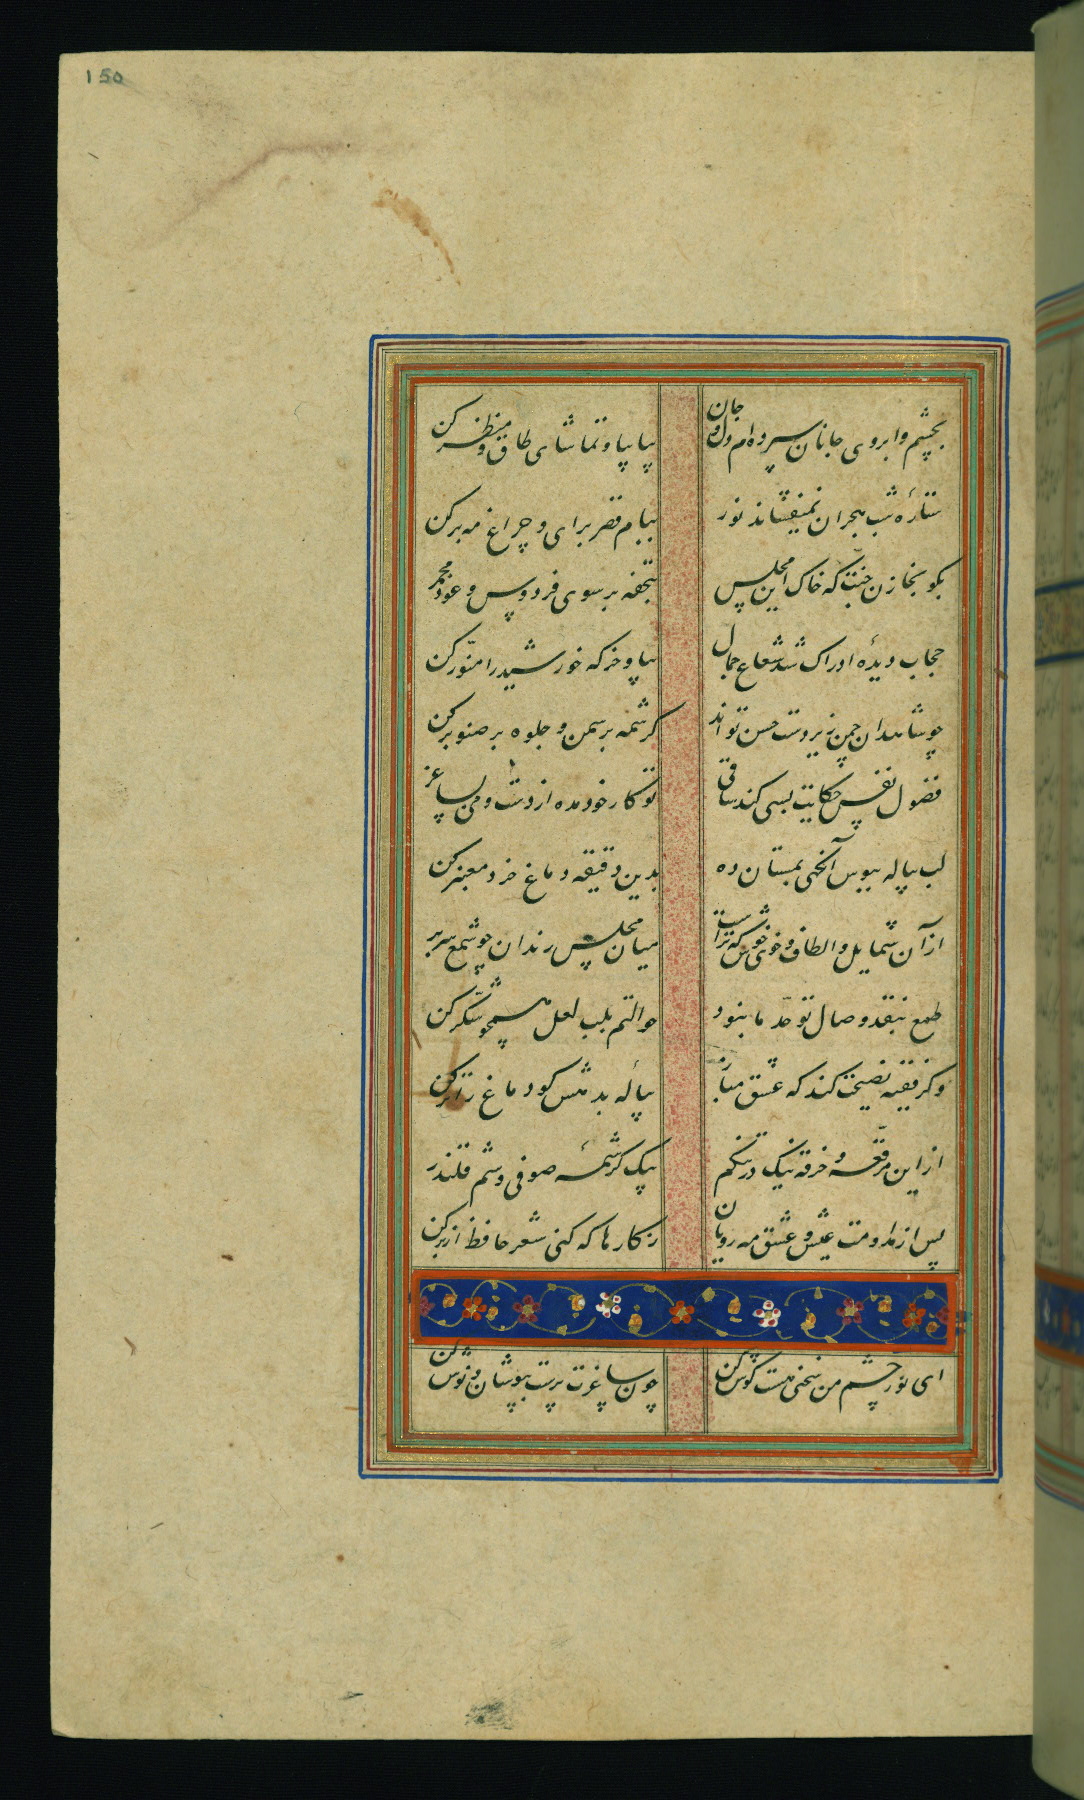 150
بچشم و ابروی جانان سپرده‌ام دل و جان
بیا بیا و تماشای طاق و منظر کن
ستارهٔ شب هجران نمیفشاند نور
ببام قصر برای و چراغ مه برکن
بکو بخازن جنّت که خاک این مجلس
بتحفه بر سوی فردوس و عود مجمر
حجاب دیدهٔ ادراک شد شعاع جمال
بیا و خرکه خورشید را منوّر کن
چو شاهدان چمن زیردست حسن تواند
کرشمه بر سمن و جلوه بر صنوبر کن
فضول نفس حکایت بسی کند ساقی
تو کار خود مده از دست و می بساغر
لب پیاله ببوس آنکهی بمستان ده
بدین دقیقه دماغ خرد معنبر کن
از آن شمایل و الطاف و خوی خوش که تراست
میان مجلس رندان چو شمع سر بر
طمع بنقد وصال تو حدّ ما نبود
حوالتم بلب لعل همچو شکّر کن
وکر فقیه نصیحت کند که عشق مباز
پیالهٔ بدهش کو دماغ را تر کن
از این مرقّعه و خرقه نیک در تنکم
بیک کرشمهٔ صوفی وشم قلندر
پس از ملازمت عیش و عشق مه رویان
ز کارها که کنی شعر حافظ از بر کن
ای نور چشم من سخنی هست کوش کن
چون ساغرت پرست بنوشان و نوش کن